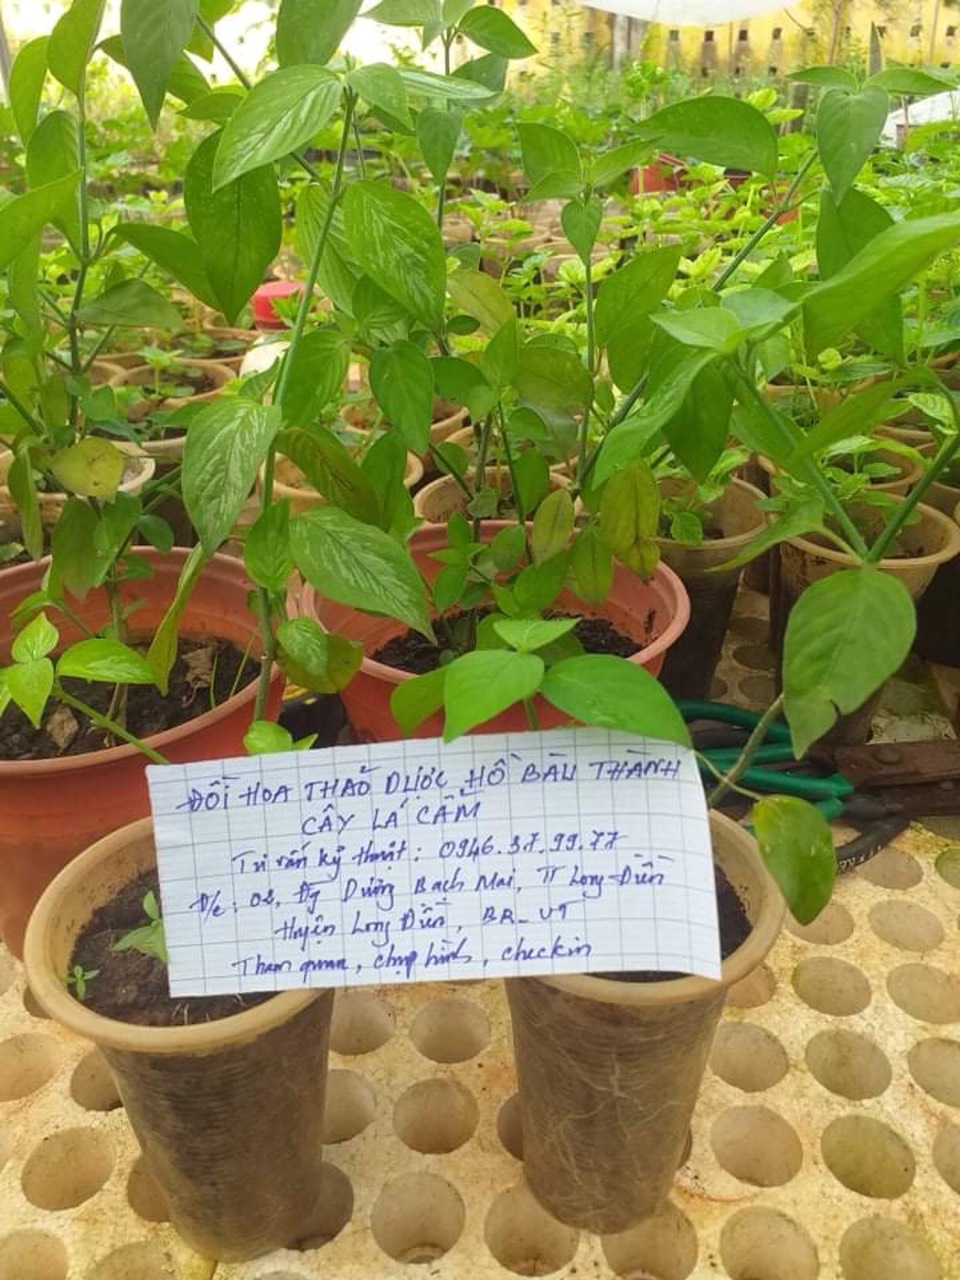 ĐỒI HOA THẢO DƯỢC HỒ BÀU THÀNH
CÂY LÁ CẨM
Tư vấn kỹ thuật: 0946.37.99.77
Đ/c: 02, Đg Dương Bạch Mai, TT Long Điền
Huyện Long Điền, BR_VT
Tham quan, chụp hình, checkin